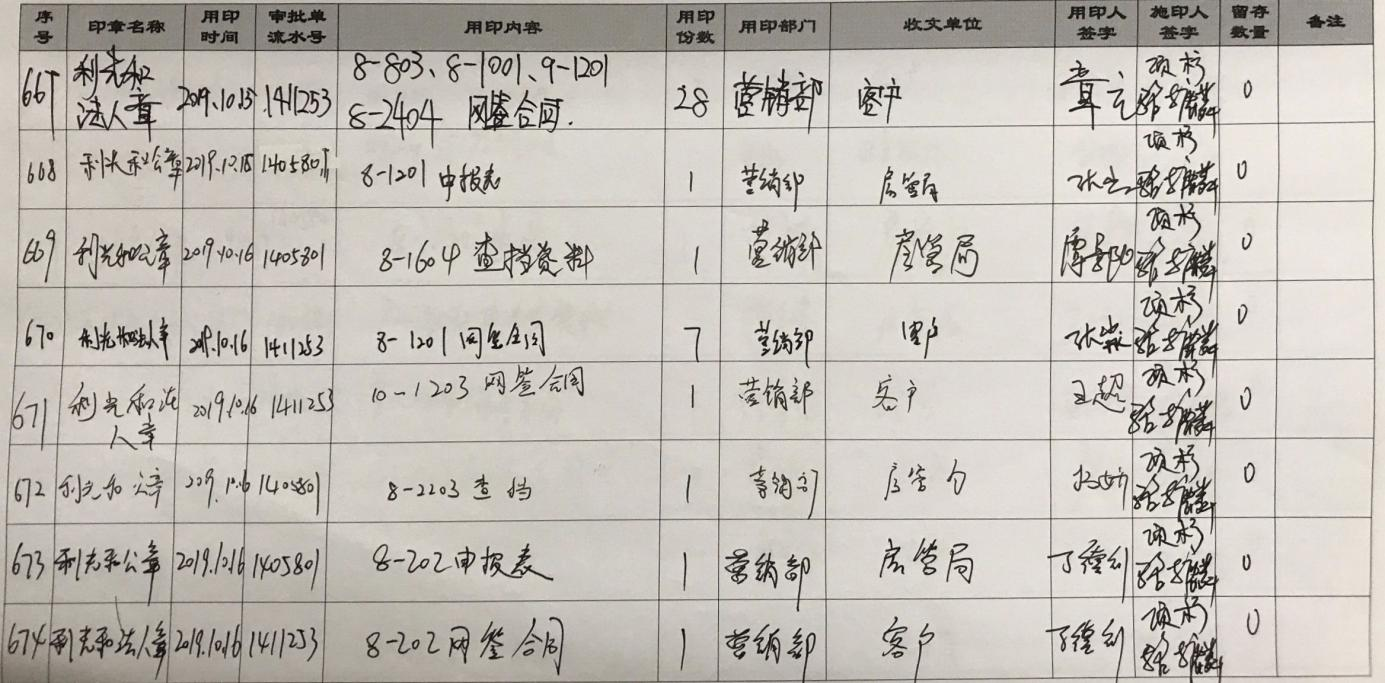 序号 印章名称 用印时间 审批单流水号 用印内容 用印份数 用印部门 收文单位 用印人签字 施印人签字 留存数量 备注
667 利光和法人章 2019.10.15 1411253 8-803、8-1001、9-1201 8-2404 网签合同. 28 营销部 客户 章立 项杉 0
668 利光和公章 2019.10.15 1405801 8-1201 申报表 1 营销部 房管局 项杉 0
669 利光和公章 2019.10.16 1405801 8-1604 查档资料 1 营销部 房管局 项杉 0
670 利光和法人章 2019.10.16 1411253 8-1201 网签合同 7 营销部 客户 项杉 0
671 利光和法人章 2019.10.16 1411253 10-1203 网签合同 1 营销部 客户 王超 项杉 0
672 利光和公章 2019.10.16 1405801 8-2203 查档 1 营销部 房管局 项杉 0
673 利光和公章 2019.10.16 1405801 8-202 申报表 1 营销部 房管局 项杉 0
674 利光和法人章 2019.10.16 1411253 8-202 网签合同 1 营销部 客户 项杉 0